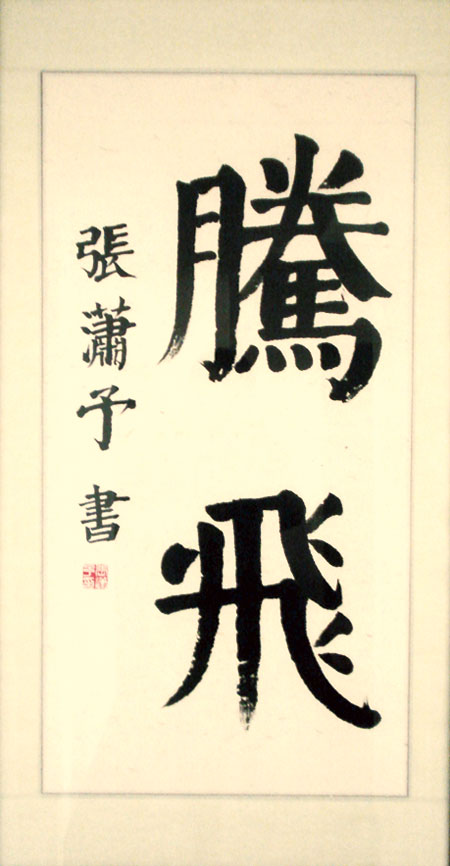 騰飛
張蕭予 書